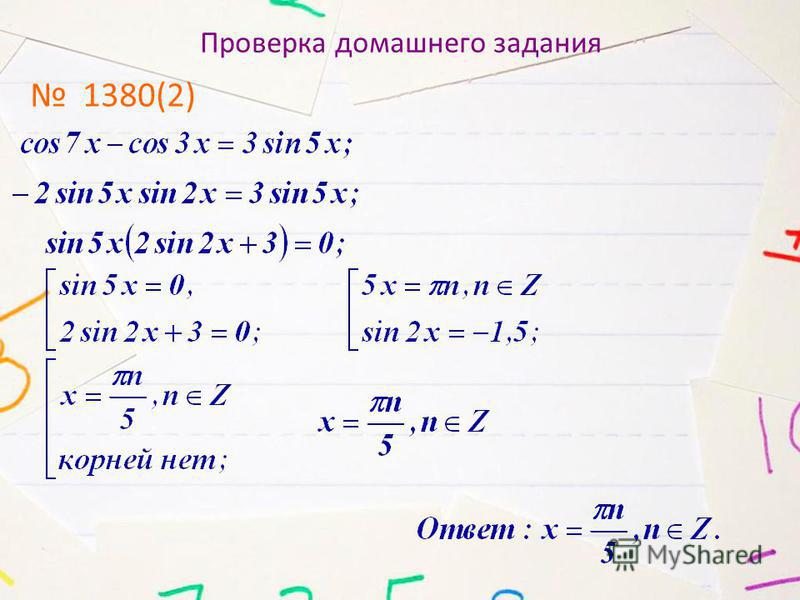 Проверка домашнего задания
№ 1380(2)
cos 7x – cos 3x = 3 sin 5x;
– 2 sin 5x sin 2x = 3 sin 5x;
sin 5x(2 sin 2x + 3) = 0;
[ sin 5x = 0, [ 5x = πn, n ∈ Z
2 sin 2x + 3 = 0; sin 2x = –1,5;
[ x = πn/5, n ∈ Z
корней нет;
x = πn/5, n ∈ Z
Ответ : x = πn/5, n ∈ Z.
MyShared